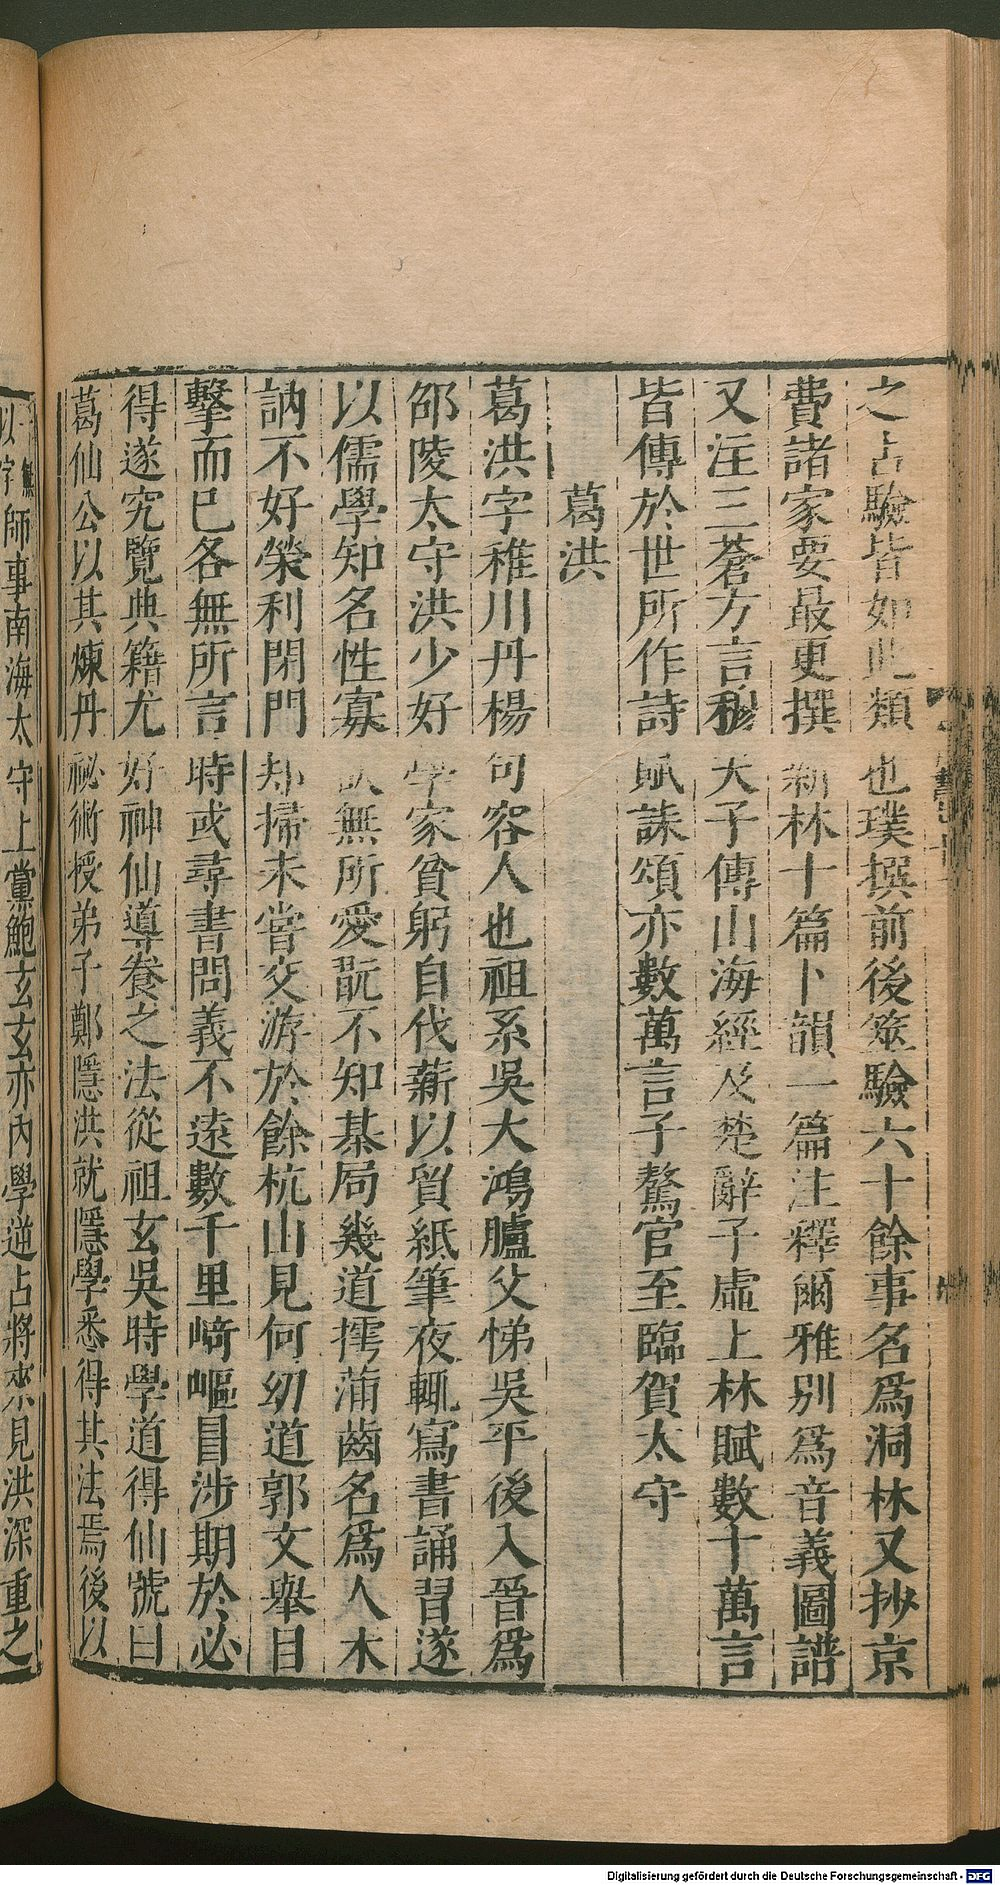 之占驗皆如此類也璞撰前後筮驗六十餘事名爲洞林又抄京
費諸家要最更撰新林十篇卜韻一篇注釋爾雅别爲音義圖譜
又注三蒼方言穆天子傳山海經及楚辭子虛上林賦數十萬言
皆傳於世所作詩賦誄頌亦數萬言子驁官至臨賀太守
葛洪
葛洪字稚川丹楊句容人也祖系吳大鴻臚父悌吳平後入晉爲
邵陵太守洪少好學家貧躬自伐薪以貿紙筆夜輒寫書誦習遂
以儒學知名性寡欲無所愛翫不知棊局幾道摴蒲齒名爲人木
訥不好榮利閉門却掃未嘗交游於餘杭山見何幼道郭文舉目
擊而已各無所言時或尋書問義不遠數千里崎嶇冒涉期於必
得遂究覽典籍尤好神仙導養之法從祖玄吳時學道得仙號曰
葛仙公以其煉丹祕術授弟子鄭隱洪就隱學悉得其法焉後以
師事南海太守上黨鮑玄玄亦内學逆占將來見洪深重之
Digitalisierung gefördert durch die Deutsche Forschungsgemeinschaft - DFG